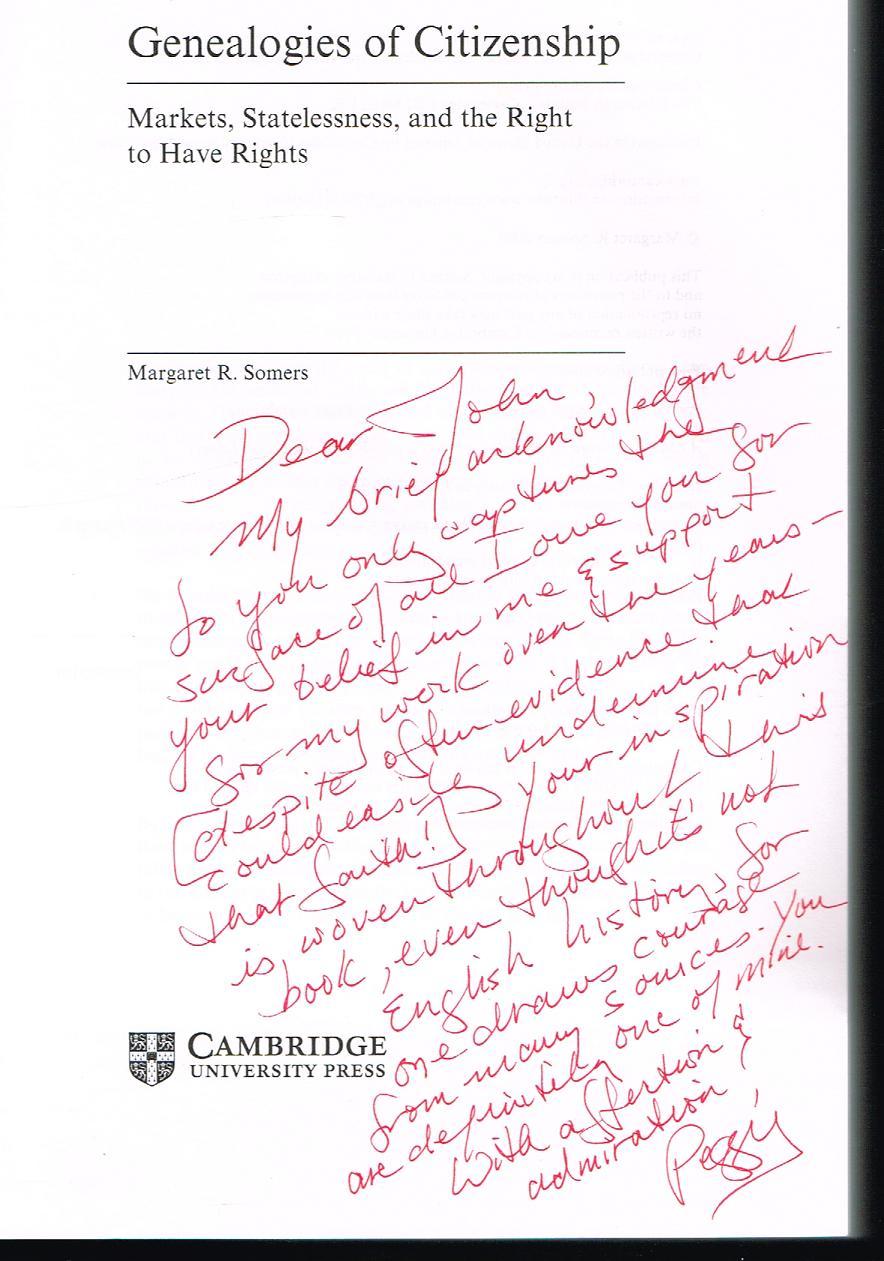 Genealogies of Citizenship
Markets, Statelessness, and the Right
to Have Rights
Margaret R. Somers
Dear John,
My brief acknowledgment
to you only captures the
surface of all I owe you for
your belief in me & support
for my work over the years –
despite often evidence that
could easily undermine
that faith! Your inspiration
is woven throughout this
book, even though it's not
English history, for
one draws courage
from many sources. You
are definitely one of mine.
With affection &
admiration,
Peggy
CAMBRIDGE
UNIVERSITY PRESS